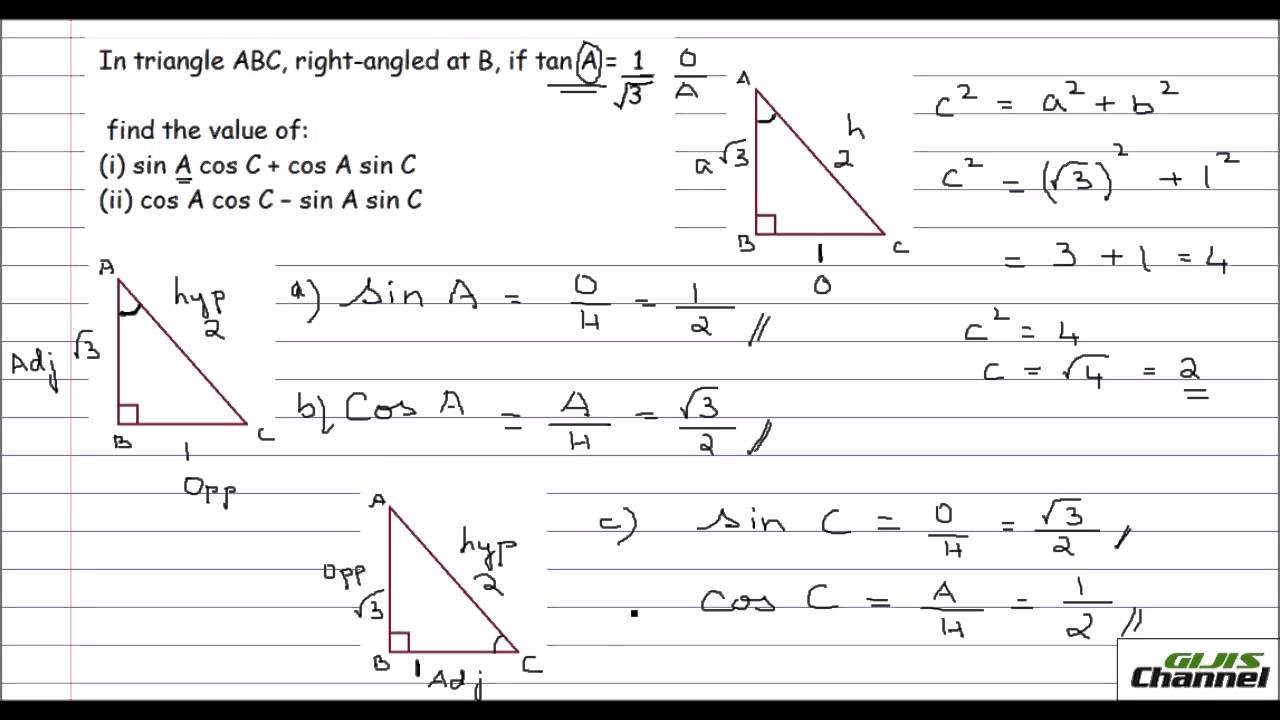 In triangle ABC, right-angled at B, if tan A = 1/√3 O/A
find the value of:
(i) sin A cos C + cos A sin C
(ii) cos A cos C – sin A sin C
A
h
2
a √3
B
1
C
O
c² = a² + b²
c² = (√3)² + 1²
= 3 + 1 = 4
c² = 4
c = √4 = 2
A
hyp
2
Adj √3
B
1
C
Opp
a) sin A = O/H = 1/2 //
b) Cos A = A/H = √3/2 //
A
hyp
2
opp
√3
B
1
C
Adj
c) sin C = O/H = √3/2 /
cos C = A/H = 1/2 //
GIJIS
Channel